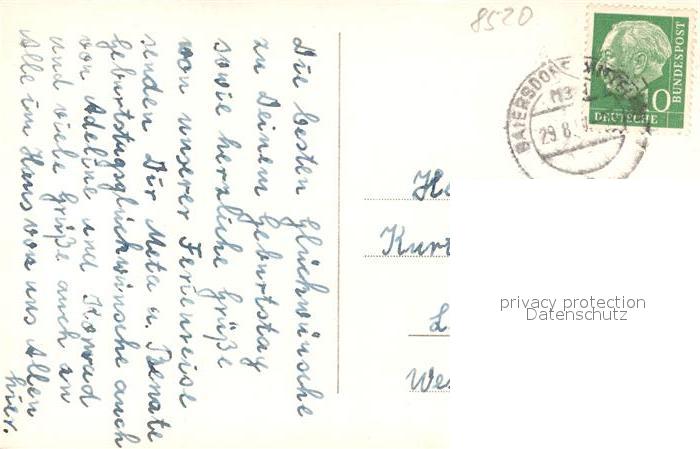 8520
DEUTSCHE
BUNDESPOST
10
BAIERSDORF
29.8.
Die besten Glückwünsche
zu Deinem Geburtstag
sowie herzliche Grüße
von unserer Ferienreise
senden Dir Meta u. Renate
Geburtstagsglückwünsche auch
von Adeline und Konrad
und viele Grüße auch an
Alle im Haus von uns Allen
hier.
Kurt
privacy protection
Datenschutz